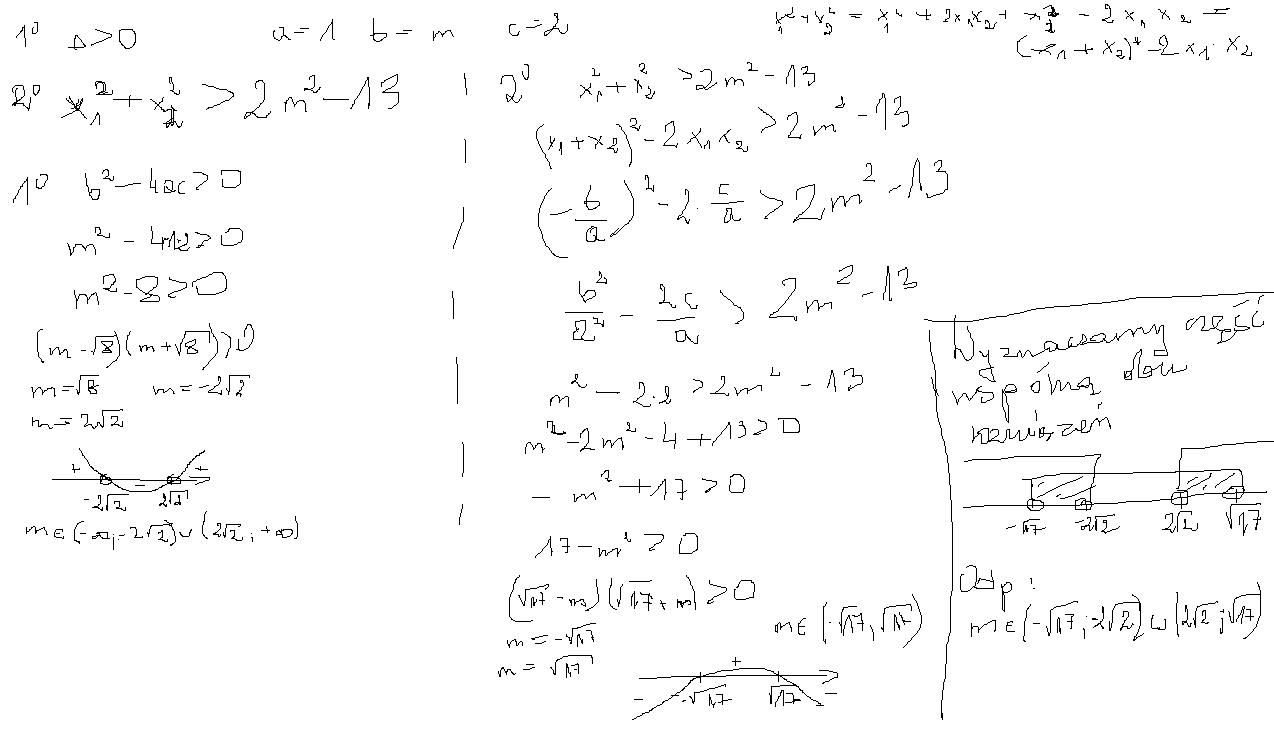 1° Δ>0
a=1 b=m c=2
x₁²+x₂² = x₁²+2x₁x₂+x₂²-2x₁x₂ =
(x₁+x₂)²-2x₁·x₂
2° x₁²+x₂² > 2m²-13
1° b²-4ac>0
m²-4·1·2>0
m²-8>0
(m-√8)(m+√8)>0
m=√8 m=-2√2
m=2√2
+ - +
-2√2 2√2
m∈(-∞;-2√2)∪(2√2;+∞)
2° x₁²+x₂² >2m²-13
(x₁+x₂)²-2x₁x₂>2m²-13
(-b/a)²-2·c/a>2m²-13
b²/a² - 2c/a > 2m²-13
m²-2·2>2m²-13
m²-2m²-4+13>0
-m²+17>0
17-m²>0
(√17-m)(√17+m)>0
m=-√17
m=√17
m∈(-√17;√17)
- + -
-√17 √17
Wyznaczamy część
wspólną obu
rozwiązań
-√17 -2√2 2√2 √17
Odp:
m∈(-√17;-2√2)∪(2√2;√17)